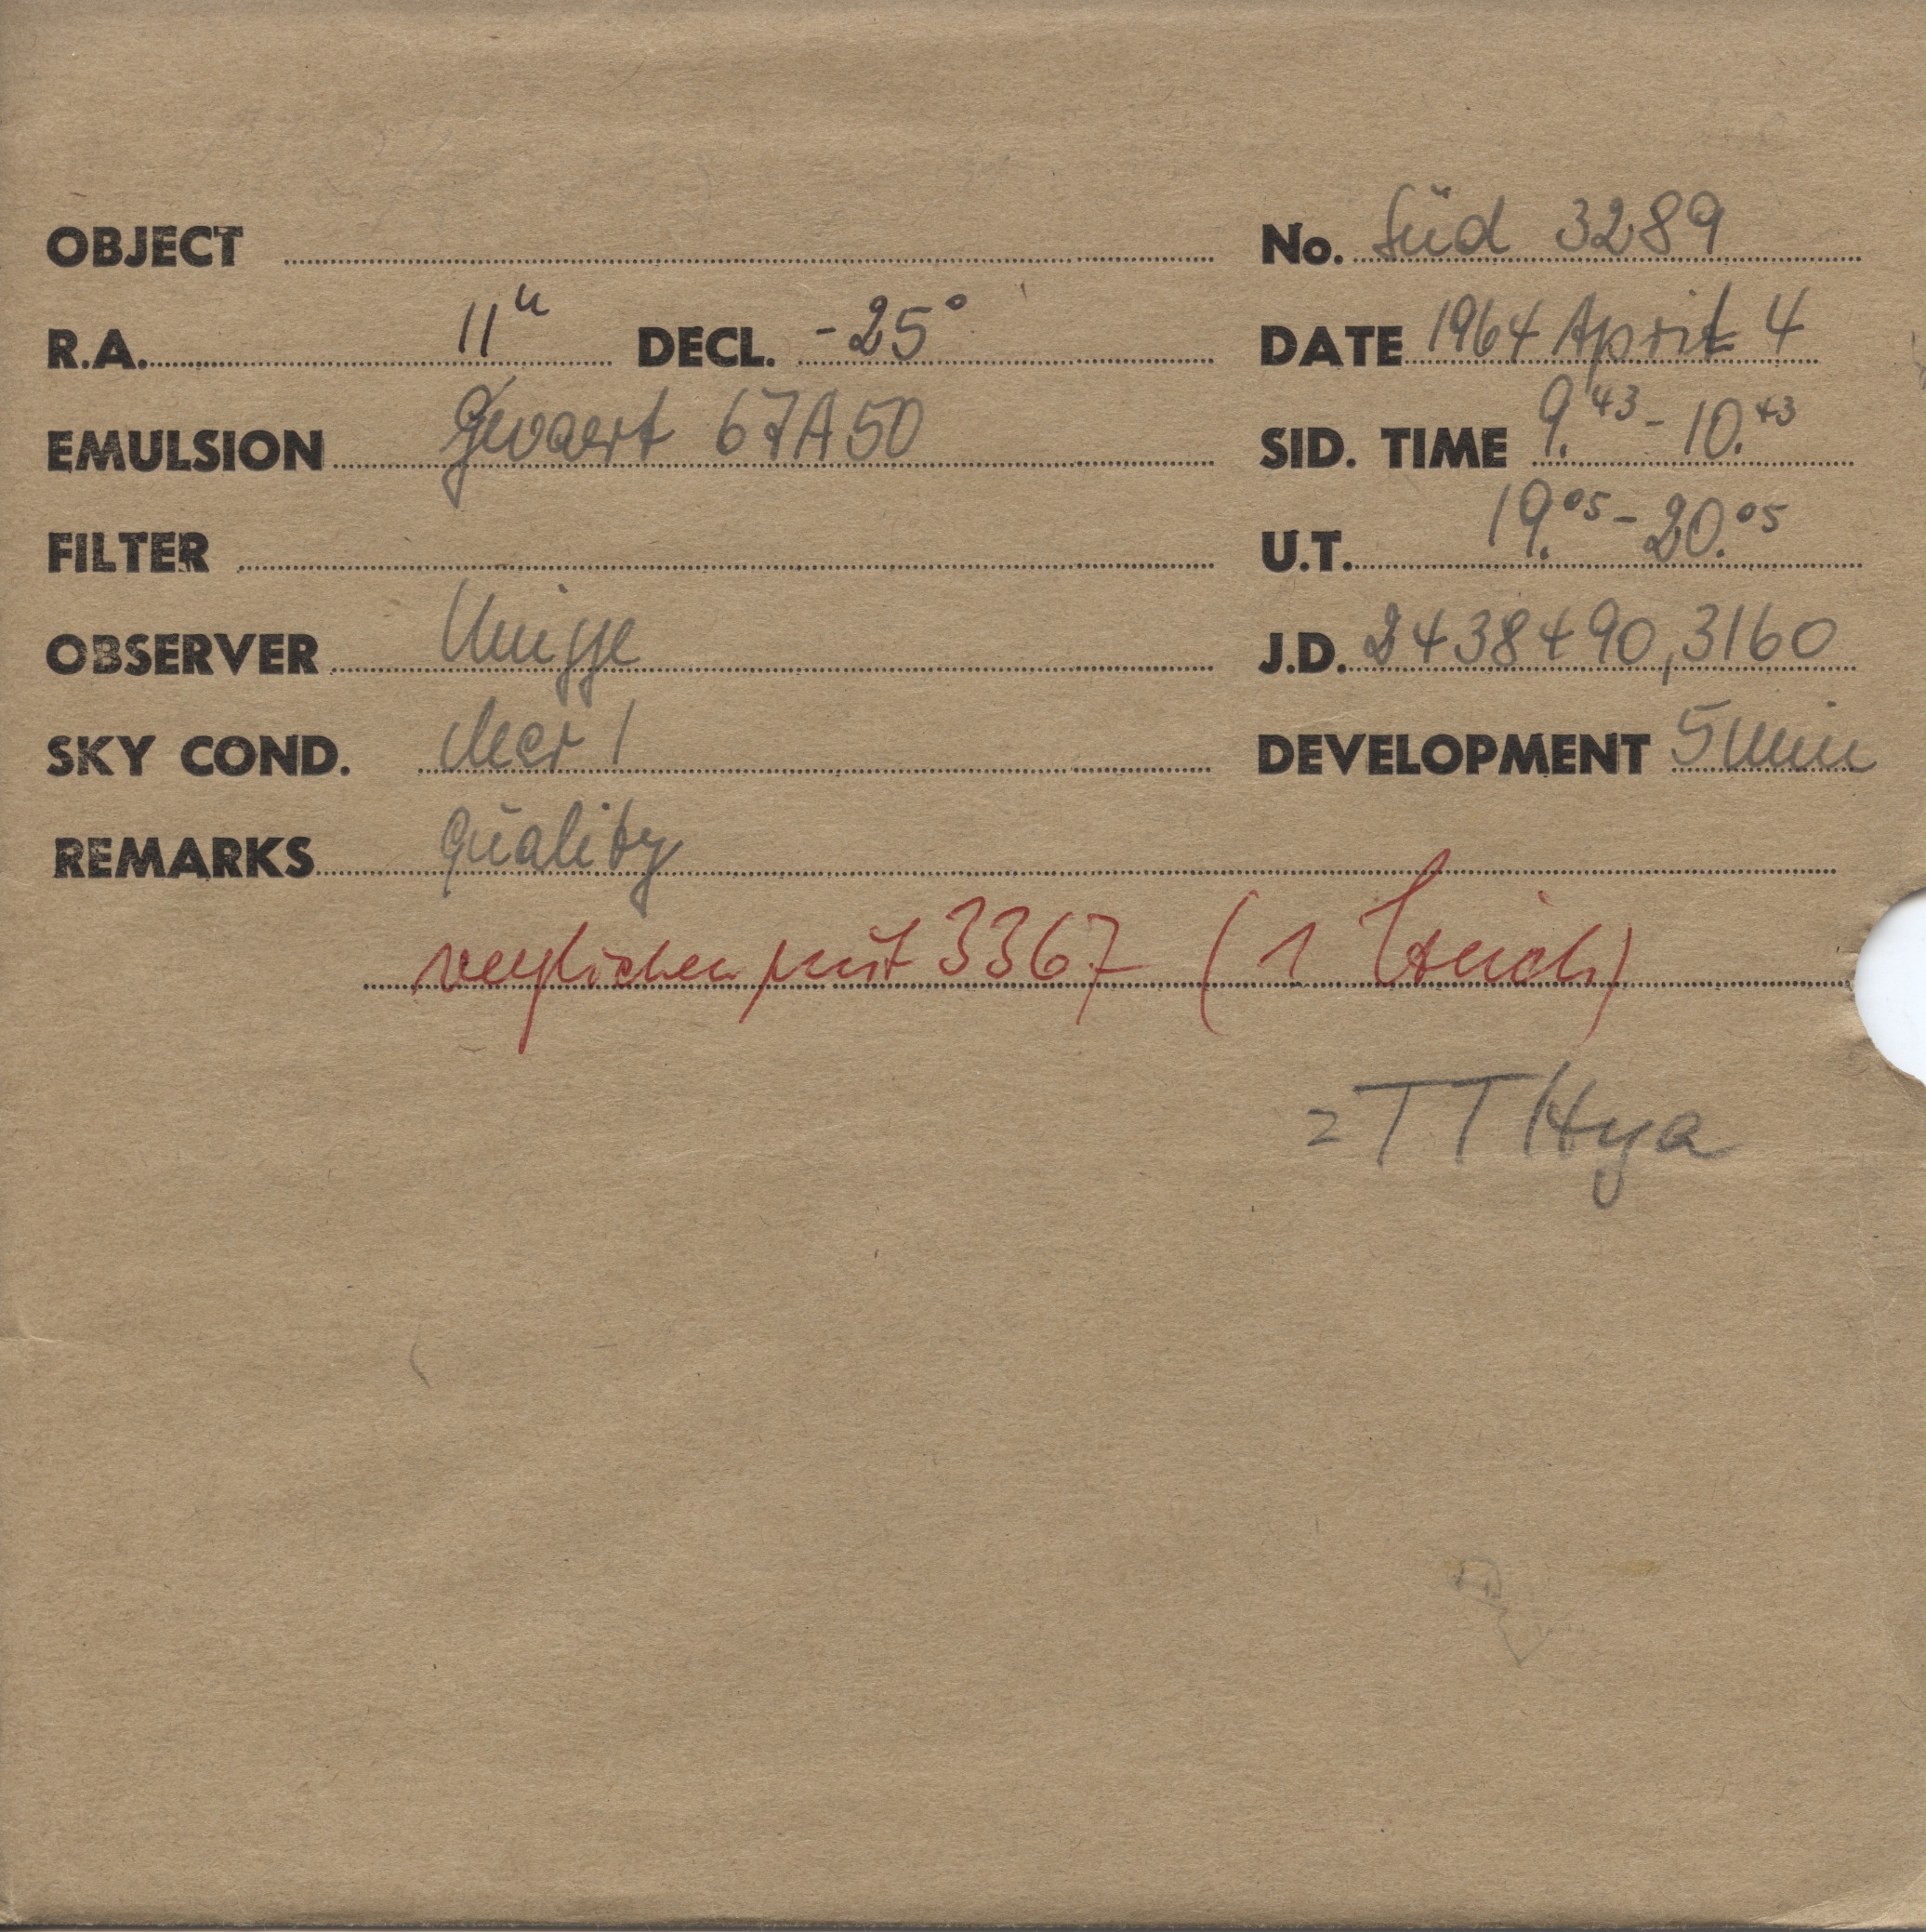 OBJECT No. Süd 3289
R.A. 11ʰ DECL. -25° DATE 1964 April 4
EMULSION Gevaert 67A50 SID. TIME 9.⁴³ - 10.⁴³
FILTER U.T. 19.⁰⁵ - 20.⁰⁵
OBSERVER J.D. 2438490,3160
SKY COND. clear 1 DEVELOPMENT 5 min
REMARKS Quality
verglichen mit 3367 (1 Strich)
= TT Hya